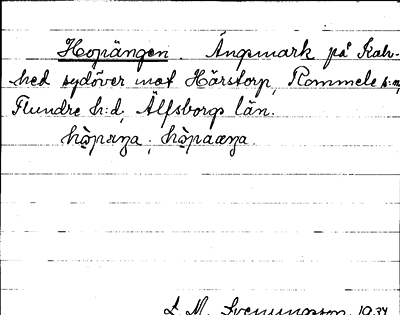 Hopängen. Ängsmark på Kalv-
hed sydöver mot Härstorp, Rommele s:n,
Flundre h:d, Älfsborgs län.
L. M. Svenungsson 1934